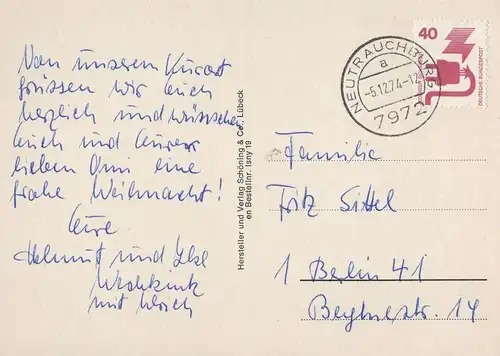 Von unserem Kurort
grüssen wir Euch
herzlich und wünschen
Euch und Eurer
lieben Omi eine
frohe Weihnacht!
Eure
Helmut und Ilse
mit Ulrich
Hersteller und Verlag Schöning & Co, Lübeck
en Bestellnr. Isny 19
NEUTRAUCHBURG
a
-5.12.74-12
7972
40
DEUTSCHE BUNDESPOST
Familie
Fritz Sittel
1 Berlin 41
14